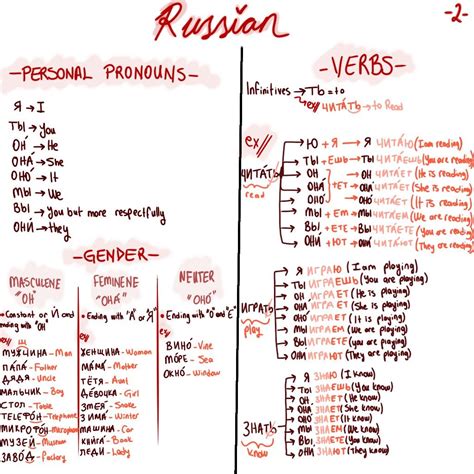 Russian
-2-
-PERSONAL PRONOUNS-
Я → I
ТЫ → You
ОН → He
ОНА́ → She
ОНО́ → It
МЫ → We
ВЫ → You but more respectfully
ОНИ́ → they
-GENDER-
MASCULENE
"ОН"
Constant or Й and
ending with "ОЙ"
ex//
МУЖЧИ́НА - Man
ПА́ПА - Father
ДЯ́ДЯ - Uncle
МАЛЬЧИК - Boy
СТОЛ - Table
ТЕЛЕФО́Н - Telephone
МИКРОФО́Н - Microphone
МУЗЕ́Й - Museum
ЗАВО́Д - Factory
FEMINENE
"ОНА́"
Ending with "А" or "Я"
ex//
ЖЕ́НЩИНА - Woman
МА́МА - Mother
ТЁТЯ - Aunt
ДЕ́ВОЧКА - Girl
ЗМЕЯ́ - Snake
ЗИМА́ - Winter
МАШИ́НА - Car
КНИ́ГА - Book
NEUTER
"ОНО́"
Ending with "О" and "Е"
ex//
ВИНО́ - Vine
МО́РЕ - Sea
ОКНО́ - Window
-VERBS-
Infinitives → ТЬ = to
ex// ЧИТА́ТЬ → to Read
ex//
ЧИТА́ТЬ
read
Ю + Я → Я ЧИТА́Ю (I am reading)
ТЫ + ЕШЬ → ТЫ ЧИТА́ЕШЬ (You are reading)
ОН + ЕТ → ОН ЧИТА́ЕТ (He is reading)
ОНА́ ОНА́ ЧИТА́ЕТ (She is reading)
ОНО́ ОНО́ ЧИТА́ЕТ (It is reading)
МЫ + ЕМ → МЫ ЧИТА́ЕМ (We are reading)
ВЫ + ЕТЕ → ВЫ ЧИТА́ЕТЕ (You are reading)
ОНИ́ + ЮТ → ОНИ́ ЧИТА́ЮТ (They are reading)
ИГРАТЬ
play
Я ИГРАЮ (I am playing)
ТЫ ИГРАЕШЬ (You are playing)
ОН ИГРАЕТ (He is playing)
ОНА́ ИГРАЕТ (She is playing)
ОНО́ ИГРАЕТ (It is playing)
МЫ ИГРАЕМ (We are playing)
ВЫ ИГРАЕТЕ (You are playing)
ОНИ́ ИГРАЮТ (They are playing)
ЗНАТЬ
know
Я ЗНАЮ (I know)
ТЫ ЗНАЕШЬ (You know)
ОН ЗНАЕТ (He know)
ОНА́ ЗНАЕТ (She know)
ОНО́ ЗНАЕТ (It know)
МЫ ЗНАЕМ (We know)
ВЫ ЗНАЕТЕ (You know)
ОНИ́ ЗНАЮТ (They know)